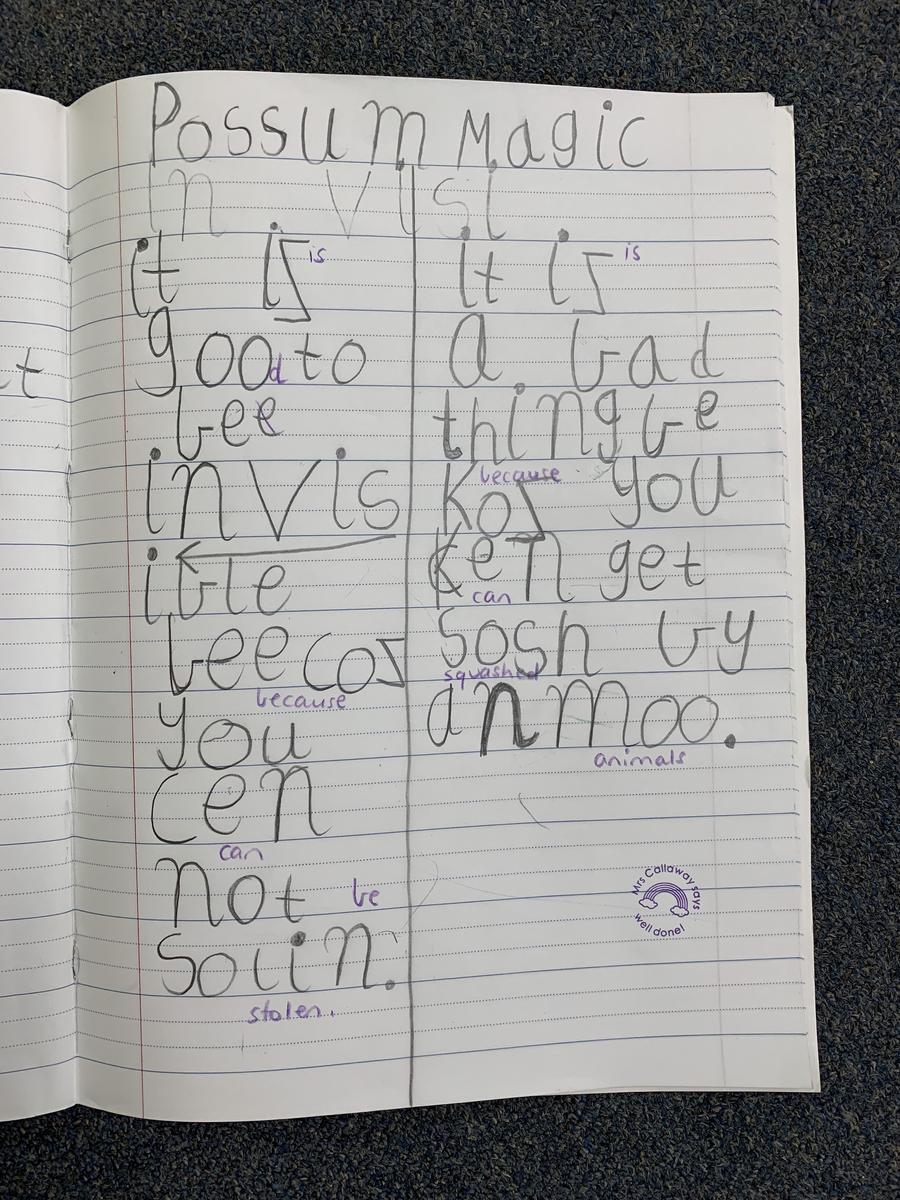 Possum Magic
In visi
it iz is
goodto
bee
invis
ible
beecoz
because
you
cen
can
not be
solin.
stolen.
it iz is
a bad
thing be
because
koz you
ken get
can
sosh by
squashed
anmoo.
animals
Mrs Callaway says
well done!
t